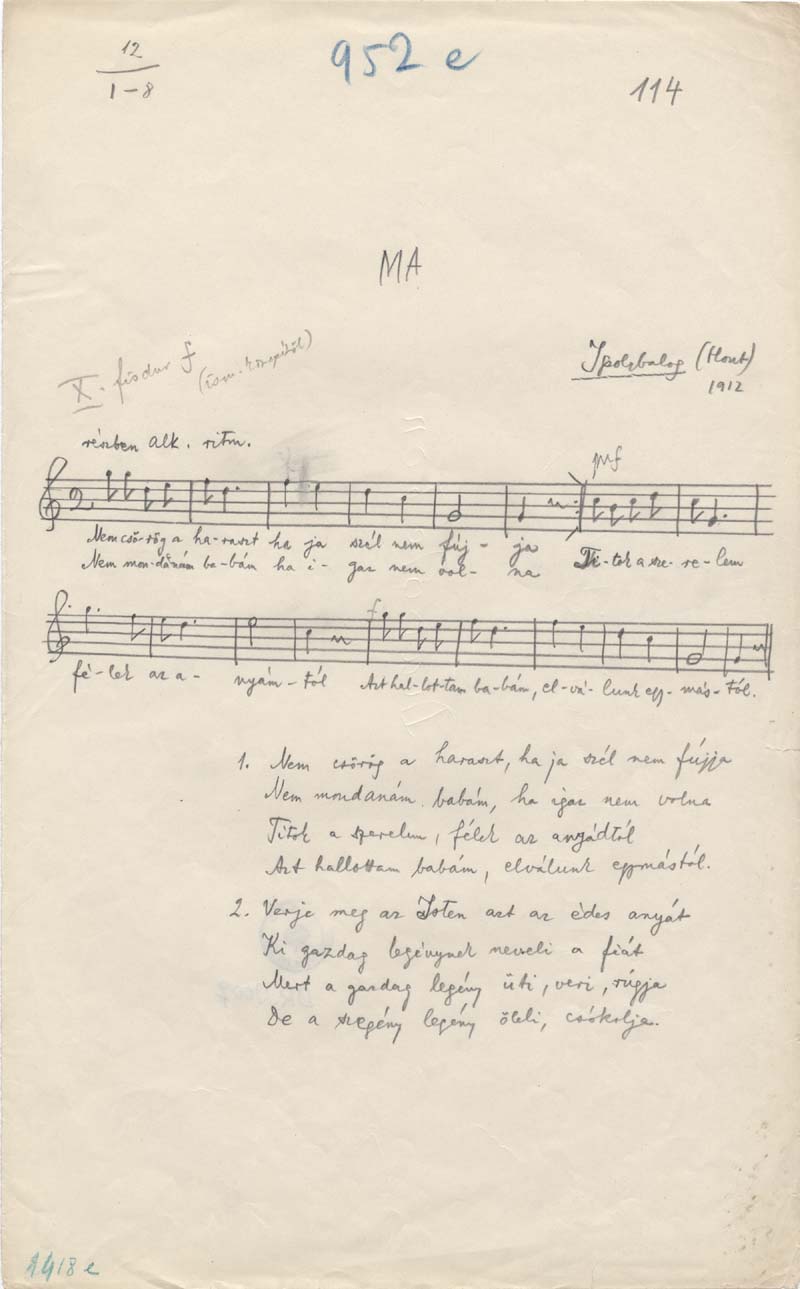 12
1-8
952 e
114
MA
X. fisdur f
Ipolybalog (Hont)
1912
részben alk. ritm.
mf
Nem csö-rög a ha-raszt ha ja szél nem fúj-ja Ti-tok a sze-re-lem
Nem mon-danám ba-bám ha i-gaz nem vol-na
f
fé-lek az a-nyám-tól Azt hal-lot-tam ba-bám, el-vá-lunk egy-más-tól.
1. Nem csörög a haraszt, ha ja szél nem fújja
Nem mondanám babám, ha igaz nem volna
Titok a szerelem, félek az anyádtól
Azt hallottam babám, elválunk egymástól.
2. Verje meg az Isten azt az édes anyát
Ki gazdag legénynek neveli a fiát
Mert a gazdag legény üti, veri, rúgja
De a szegény legény öleli, csókolja.
2418 e